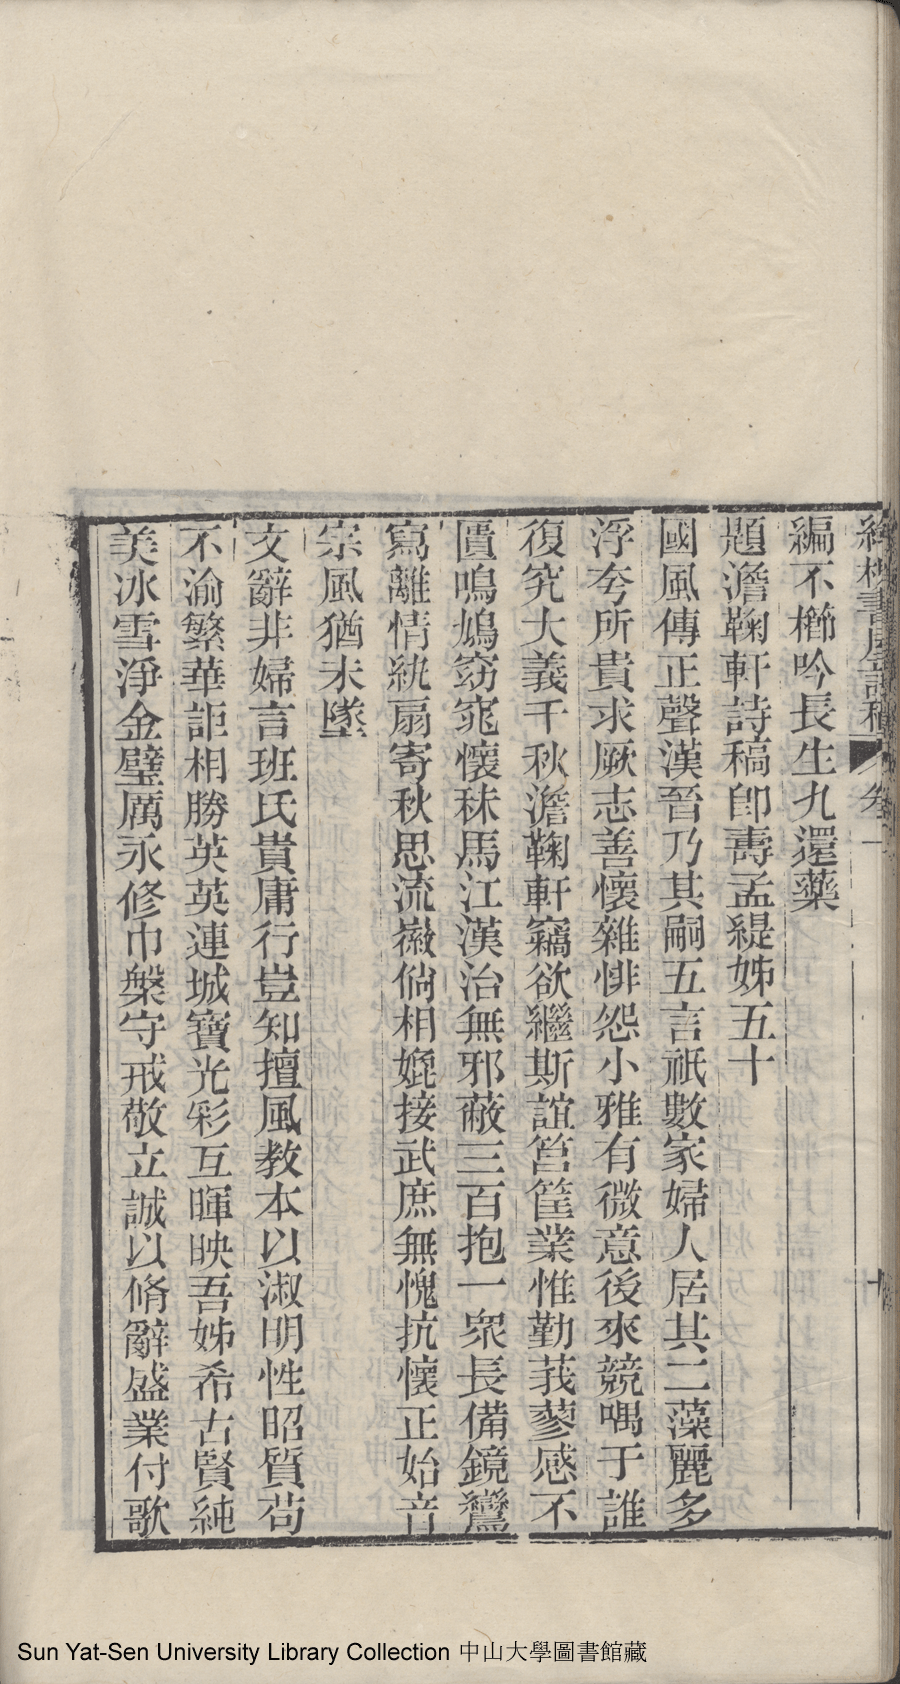 緯槻書屋詩稿 卷一 十
編不櫛吟長生九還藥
題澹鞠軒詩稿卽壽孟緹姊五十
國風傳正聲漢晉乃其嗣五言祇數家婦人居其二藻麗多
浮夸所貴求厥志善懷雜悱怨小雅有微意後來競喁于誰
復究大義千秋澹鞠軒竊欲繼斯誼筥筐業惟勤莪蓼感不
匱鳴鳩窈窕懷秣馬江漢治無邪蔽三百抱一衆長備鏡鸞
寫離情紈扇寄秋思流徽倘相嬔接武庶無愧抗懷正始音
宗風猶未墜
文辭非婦言班氏貴庸行豈知擅風教本以淑明性昭質苟
不渝繁華詎相勝英英連城寶光彩互暉映吾姊希古賢純
美冰雪淨金璧厲永修巾槃守戒敬立誠以脩辭盛業付歌
Sun Yat-Sen University Library Collection 中山大學圖書館藏